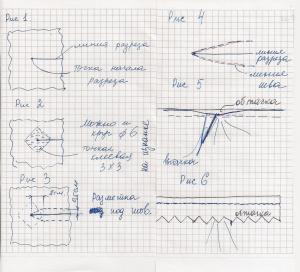 Рис 1
линия разреза
точка начала
разреза
Рис 2
Можно и
круг ф6
точкая
клеевая
3×3
на изнанке
Рис 3
Разметка
под шов.
Рис 4
линия
разреза
линия
шва
Рис 5
обтачка
втачка
Рис 6
обтачка